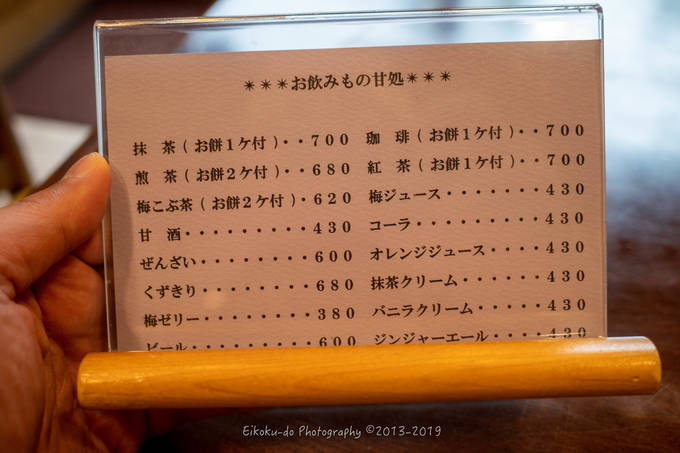 ✴✴✴お飲みもの甘処✴✴✴
抹　茶(お餅１ケ付)・・７００
煎　茶(お餅２ケ付)・・６８０
梅こぶ茶(お餅２ケ付)・６２０
甘　酒・・・・・・・・・４３０
ぜんざい・・・・・・・・６００
くずきり・・・・・・・・６８０
梅ゼリー・・・・・・・・３８０
ビール・・・・・・・・・６００
珈　琲(お餅１ケ付)・・７００
紅　茶(お餅１ケ付)・・７００
梅ジュース・・・・・・・４３０
コーラ・・・・・・・・・４３０
オレンジジュース・・・・４３０
抹茶クリーム・・・・・・４３０
バニラクリーム・・・・・４３０
ジンジャーエール・・・・４３０
Eikoku-do Photography ©2013-2019